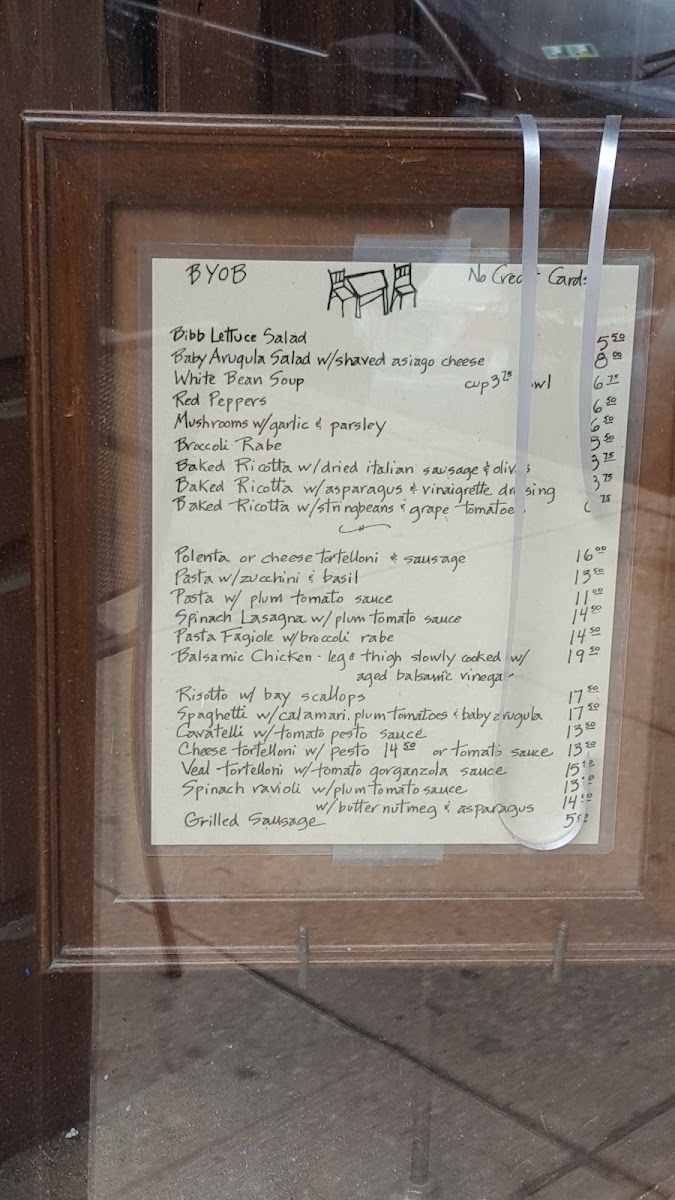 BYOB No Credit Cards
Bibb Lettuce Salad 5 50
Baby Arugula Salad w/shaved asiago cheese 8 00
White Bean Soup cup 3 75 owl 6 75
Red Peppers 6 50
Mushrooms w/garlic & parsley 6 50
Broccoli Rabe 5 50
Baked Ricotta w/dried italian sausage & olives 3 75
Baked Ricotta w/asparagus & vinaigrette dressing 3 75
Baked Ricotta w/stringbeans & grape tomatoes 75
Polenta or cheese tortelloni & sausage 16 00
Pasta w/zucchini & basil 13 50
Pasta w/ plum tomato sauce 11 00
Spinach Lasagna w/plum tomato sauce 14 50
Pasta Fagiole w/broccoli rabe 14 50
Balsamic Chicken - leg & thigh slowly cooked w/ 19 50
aged balsamic vinegar
Risotto w/ bay scallops 17 50
Spaghetti w/calamari, plum tomatoes & baby arugula 17 50
Cavatelli w/tomato pesto sauce 13 50
Cheese tortelloni w/ pesto 14 50 or tomato sauce 13 50
Veal tortelloni w/tomato gorganzola sauce 15
Spinach ravioli w/plum tomato sauce 13
w/butter nutmeg & asparagus 14
Grilled Sausage 5